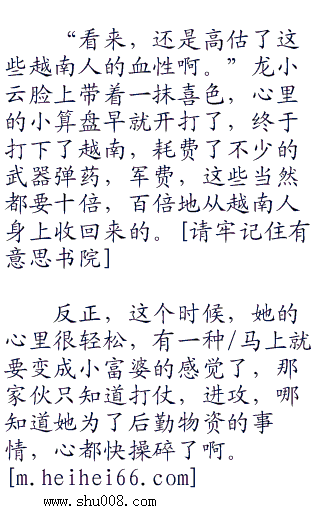 “看来，还是高估了这
些越南人的血性啊。”龙小
云脸上带着一抹喜色，心里
的小算盘早就开打了，终于
打下了越南，耗费了不少的
武器弹药，军费，这些当然
都要十倍，百倍地从越南人
身上收回来的。[请牢记住有
意思书院]
反正，这个时候，她的
心里很轻松，有一种/马上就
要变成小富婆的感觉了，那
家伙只知道打仗，进攻，哪
知道她为了后勤物资的事
情，心都快操碎了啊。
[m.heihei66.com]
www.shu008.com